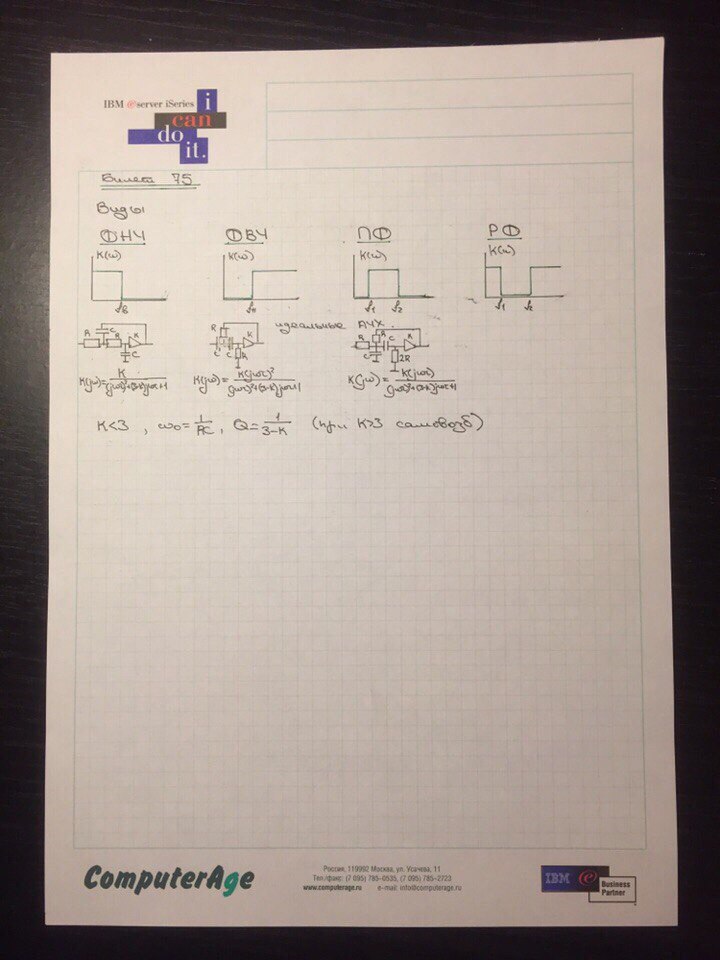 IBM e server iSeries i
can
do
it.
Билет 75
Виды
ФНЧ ФВЧ ПФ РФ
K(ω) K(ω) K(ω) K(ω)
f₁ f₂ f₁ f₂
идеальные АЧХ.
R C R K C R C C R K R C R C 2R K
K(jω)=K/((jωτ)²+(3-K)jωτ+1) K(jω)=K(jωτ)²/((jωτ)²+(3-K)jωτ+1) K(jω)=K(jωτ)/((jωτ)²+(3-K)jωτ+1)
K<3 , ω₀=1/RC , Q=1/(3-K) (при K>3 самовозб)
ComputerAge
Россия, 119992 Москва, ул. Усачева, 11
Тел./факс: (7 095) 785–0535, (7 095) 785–2723
www.computerage.ru e-mail: info@computerage.ru
IBM e Business
Partner